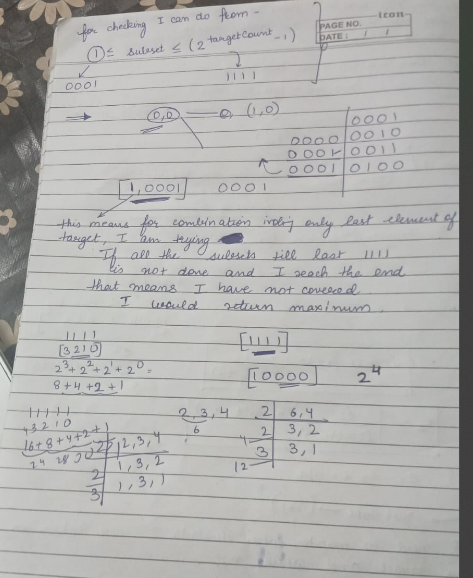 icon
PAGE NO.
DATE: / /
for checking I can do from -
① ≤ subset ≤ (2 targetCount -1)
0001 1111
⇒ (0,0) (1,0)
0001
0000 0010
0001 0011
0001 0100
[1,0001] 0001
this means for combination only last element of
target, I am trying
If all the subsets till last 1111
is not done and I reach the end
that means I have not covered
I would return maximum.
1111 [1111]
[3210]
2³+2²+2¹+2⁰= [10000] 2⁴
8+4+2+1
11111 2,3,4 2 6,4
43210 6 2 3,2
16+8+4+2+1 2 2,3,4 4 3 3,1
24 28 30 2 1,3,2 12
3 1,3,1